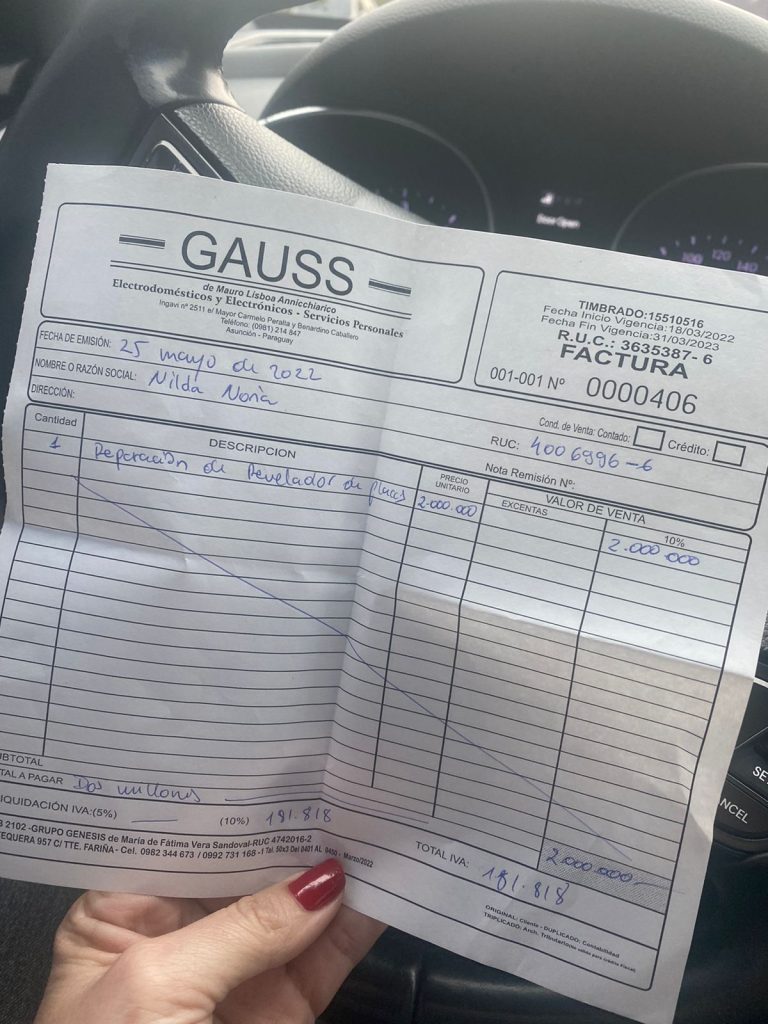 GAUSS
de Mauro Lisboa Annicchiarico
Electrodomésticos y Electrónicos - Servicios Personales
Ingavi nº 2511 e/ Mayor Carmelo Peralta y Benardino Caballero
Teléfono: (0981) 214 847
Asunción - Paraguay
TIMBRADO:15510516
Fecha Inicio Vigencia:18/03/2022
Fecha Fin Vigencia:31/03/2023
R.U.C.: 3635387- 6
FACTURA
001-001 Nº 0000406
FECHA DE EMISIÓN: 25 mayo de 2022
Cond. de Venta: Contado: Crédito:
NOMBRE O RAZÓN SOCIAL: Nilda Noria
RUC: 4006996-6
DIRECCIÓN:
Nota Remisión Nº:
Cantidad DESCRIPCION PRECIO UNITARIO VALOR DE VENTA
EXCENTAS 10%
1 Reparación de Revelador de placas 2.000.000 2.000.000
UBTOTAL
TAL A PAGAR Dos millones 2.000.000
IQUIDACIÓN IVA:(5%) (10%) 181.818 TOTAL IVA: 181.818
2102 -GRUPO GENESIS de María de Fátima Vera Sandoval-RUC 4742016-2
TEQUERA 957 C/ TTE. FARIÑA - Cel. 0982 344 673 / 0992 731 168 -1 Tal. 50x3 Del 0401 AL 0450 - Marzo/2022
ORIGINAL: Cliente - DUPLICADO: Contabilidad
TRIPLICADO: Arch. Tributario
Door Open
100 120 140
SE
NCEL